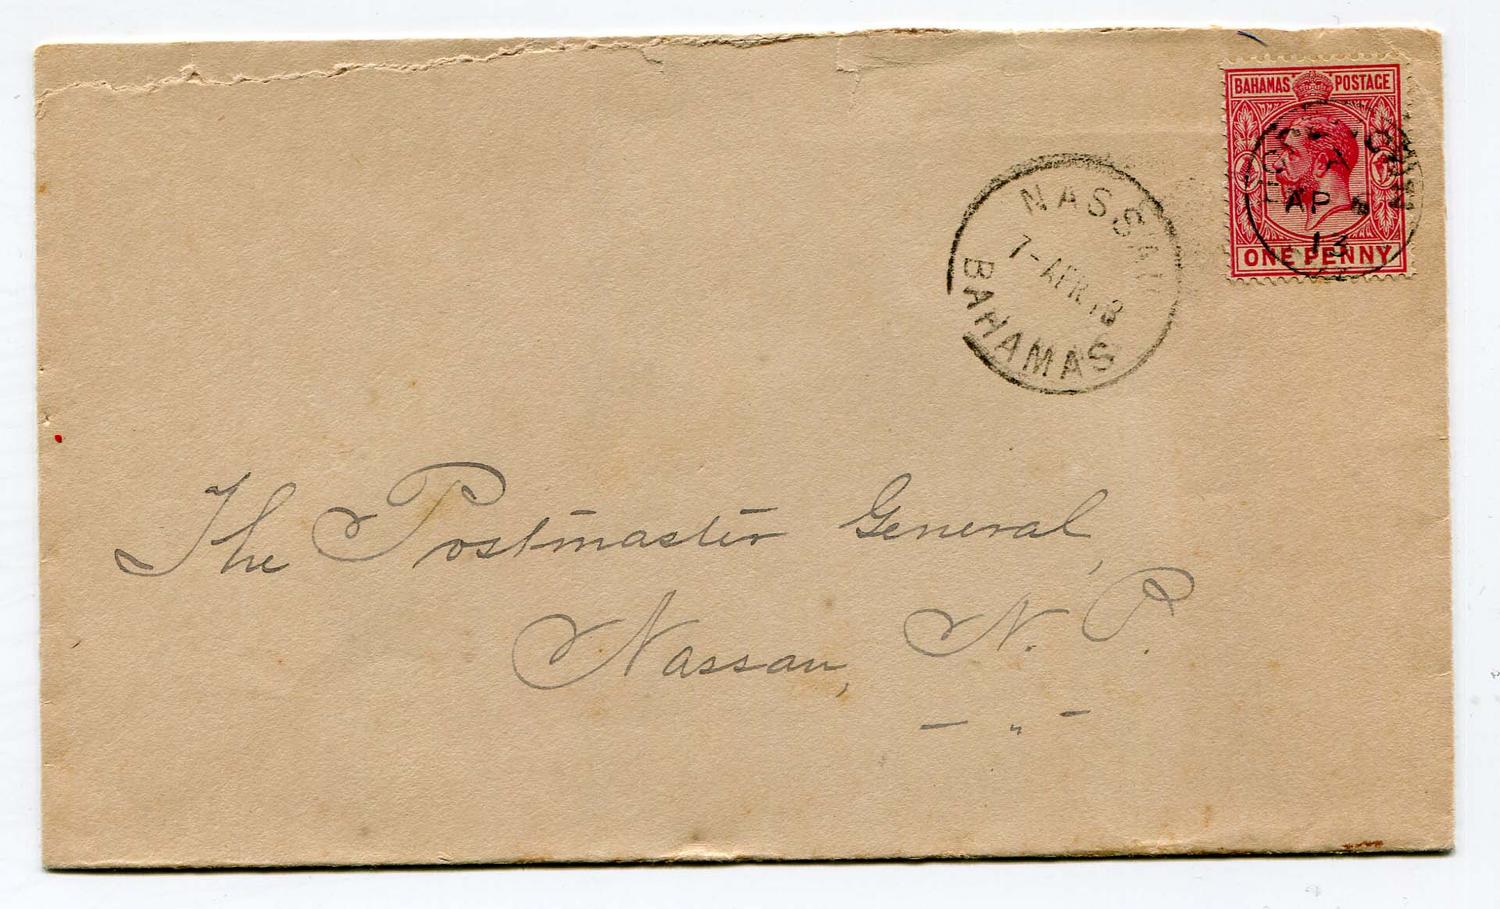 BAHAMAS POSTAGE
AP
13
ONE PENNY
NASSAU
7-APR.13
BAHAMAS
The Postmaster General,
Nassau, N. P.